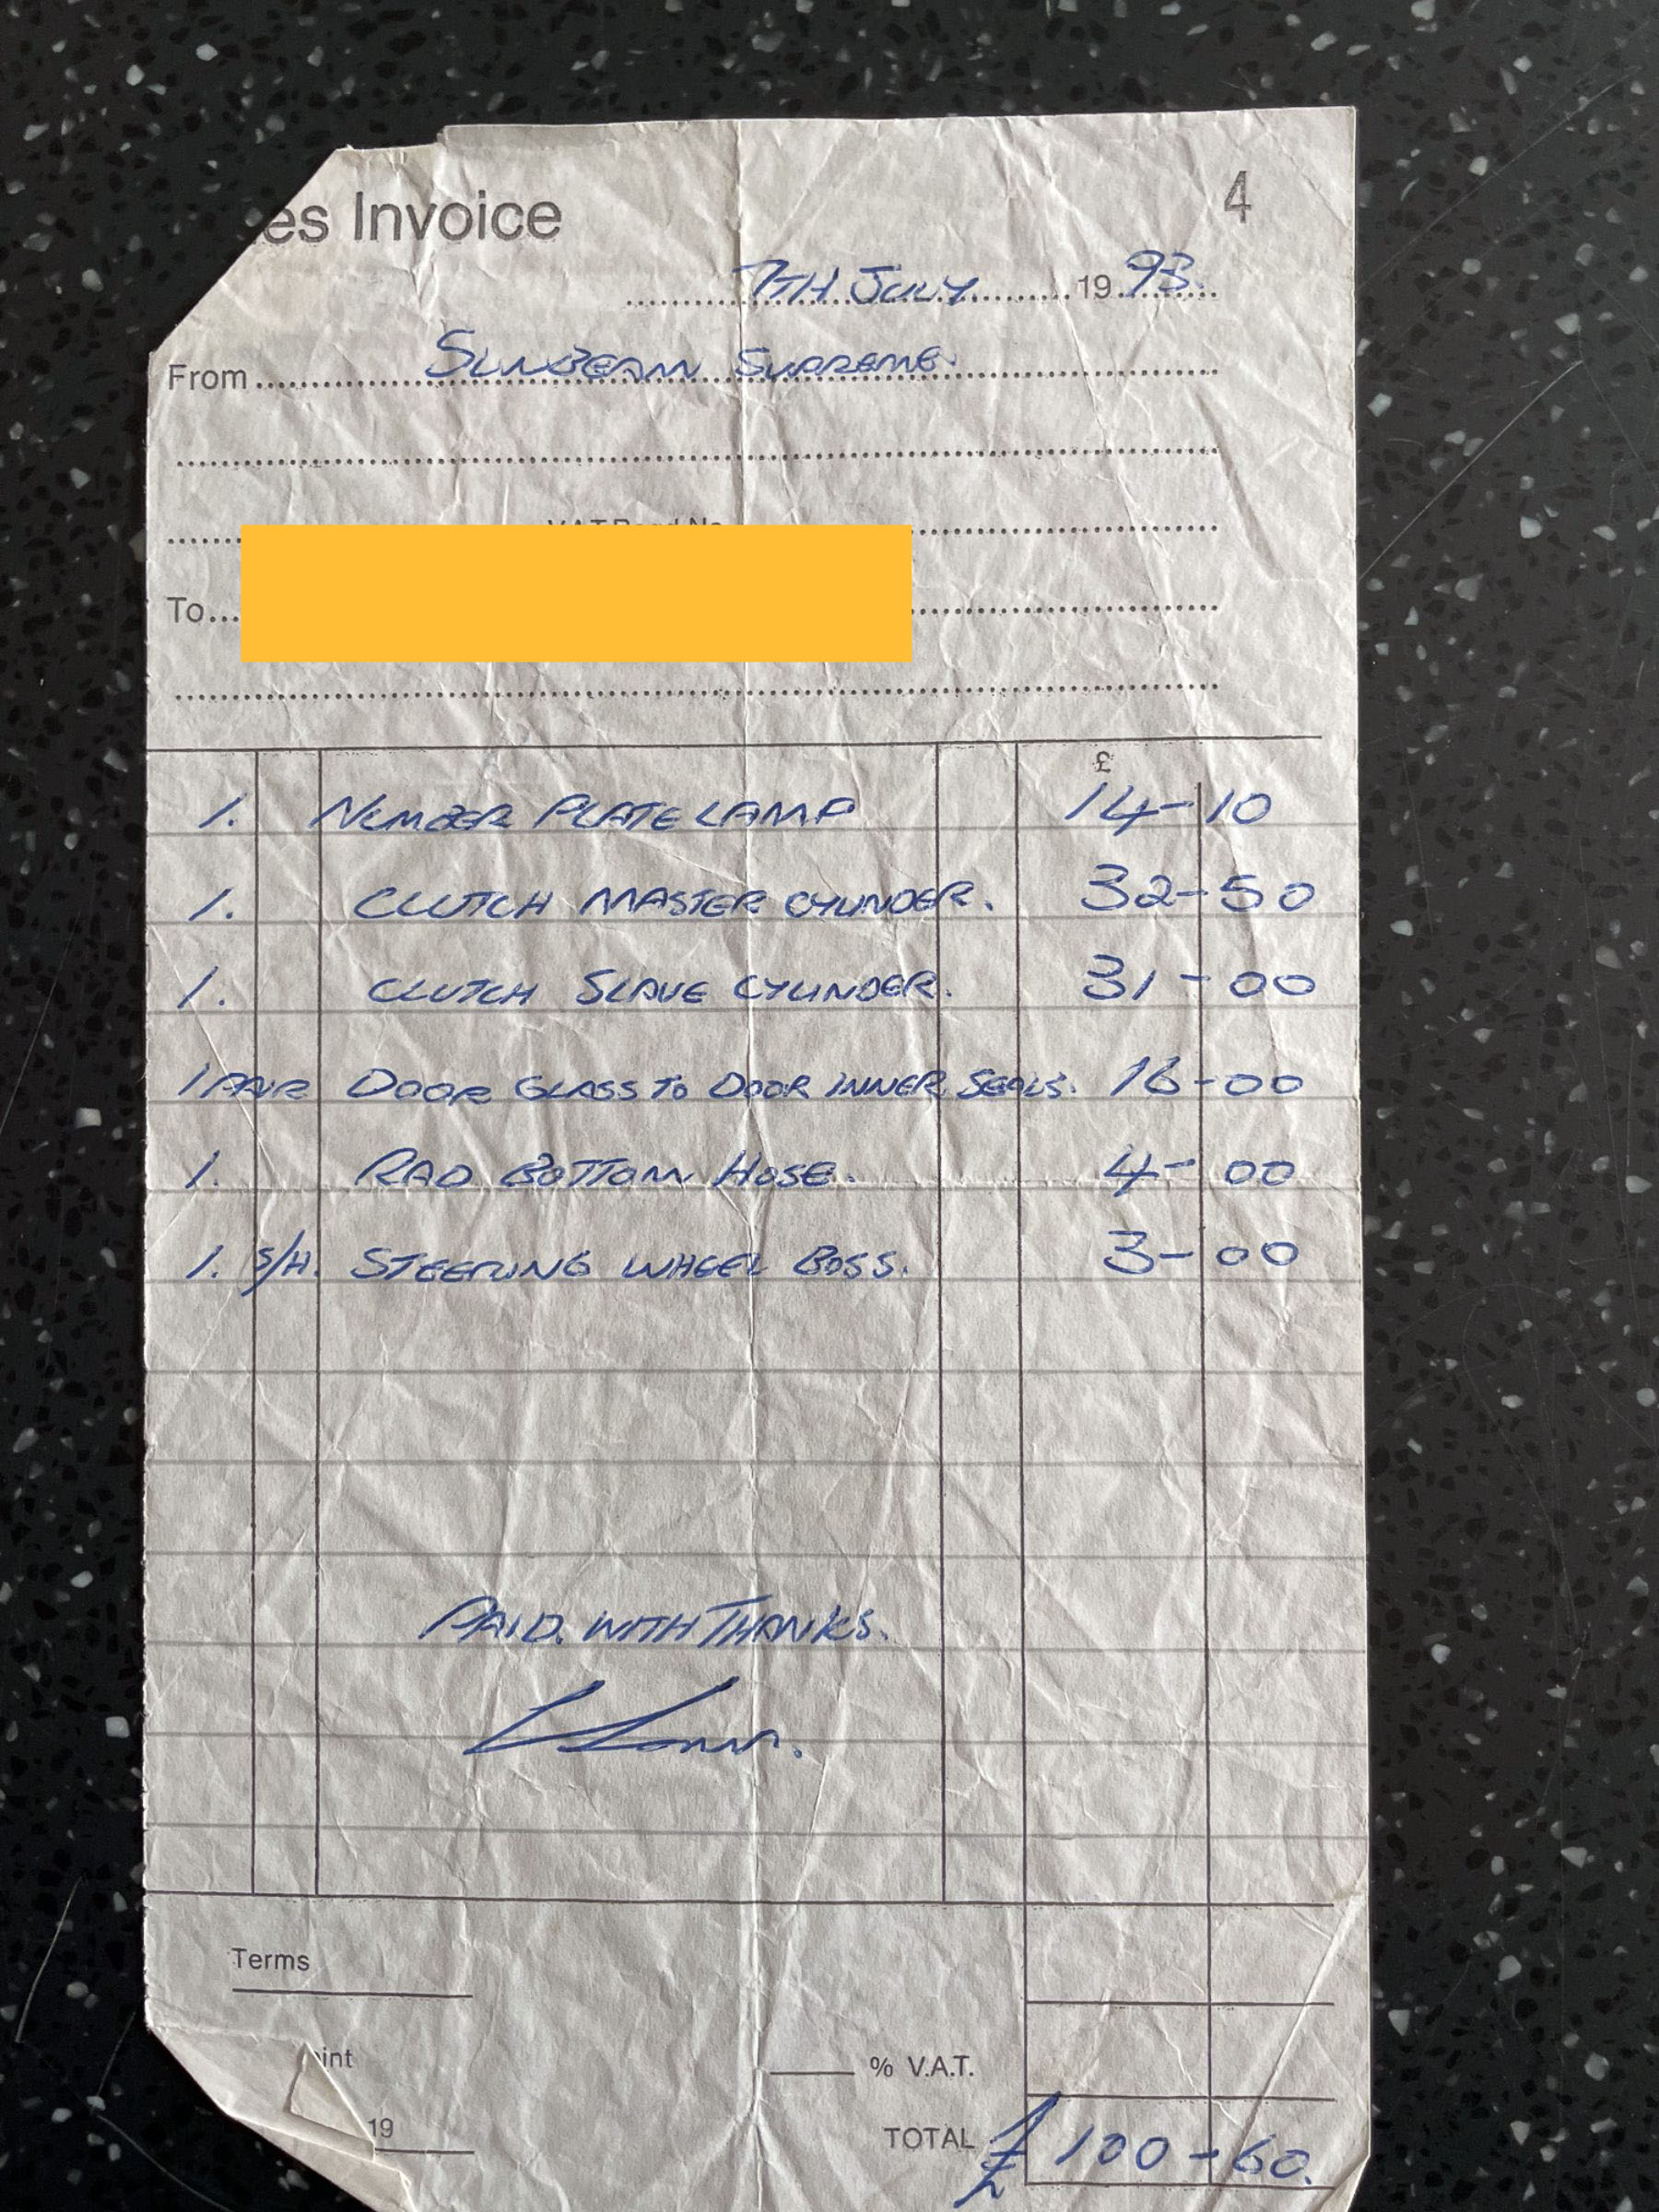 es Invoice 4
7TH JULY 19 93.
From SUNBEAM SUPREME.
To
£
1. NUMBER PLATE LAMP 14-10
1. CLUTCH MASTER CYLINDER. 32-50
1. CLUTCH SLAVE CYLINDER. 31-00
1 PAIR DOOR GLASS TO DOOR INNER SEALS. 16-00
1. RAD BOTTOM HOSE. 4-00
1. S/H. STEERING WHEEL BOSS. 3-00
PAID. WITH THANKS.
Terms
int
% V.A.T.
19
TOTAL £ 100-60.